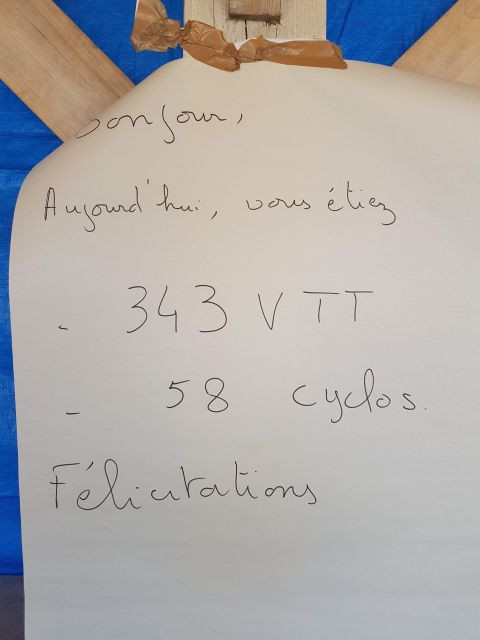 Bonjour,
Aujourd'hui, vous étiez
- 343 VTT
- 58 cyclos.
Félicitations